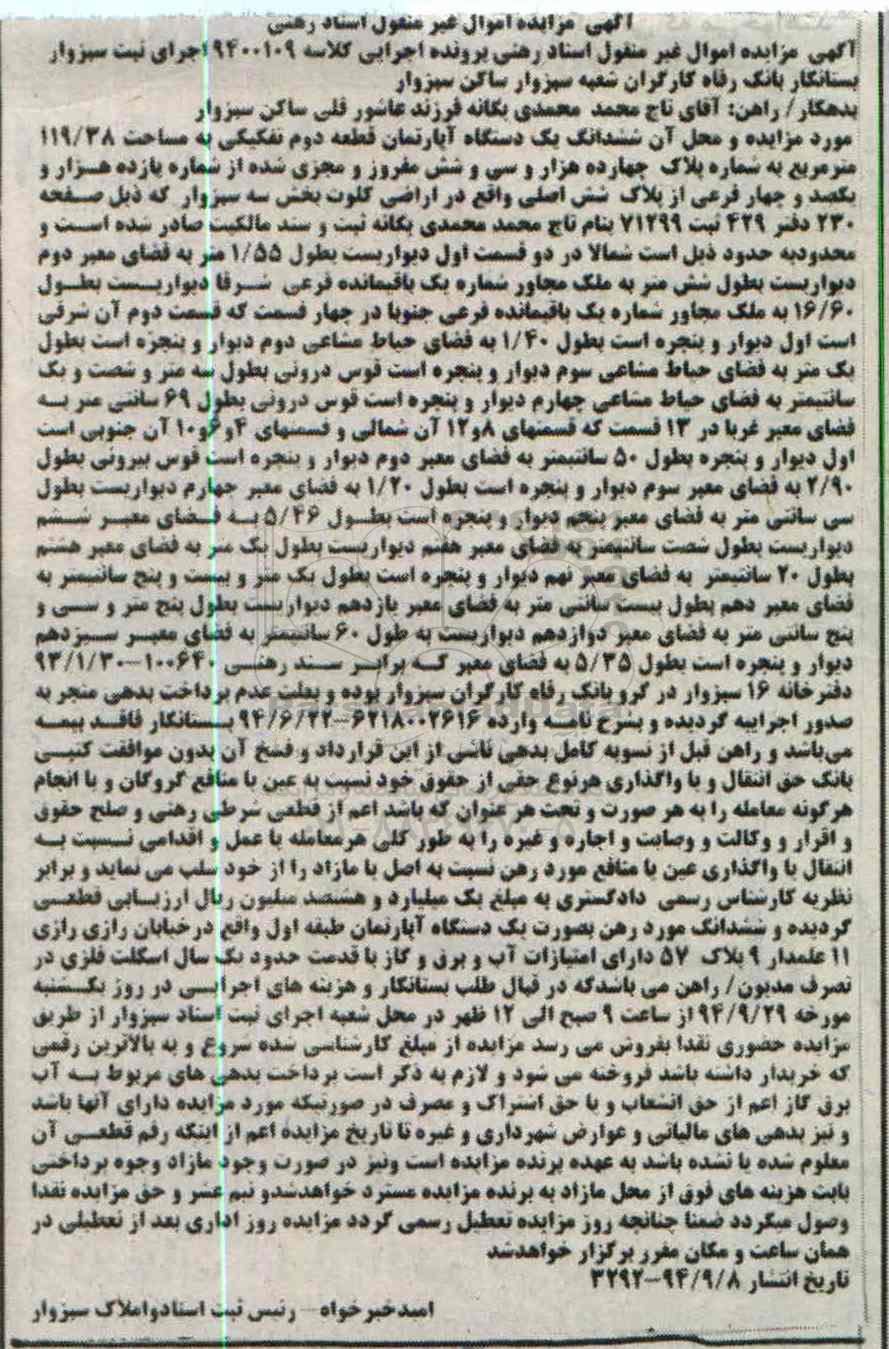 آگهی مزایده اموال غیر منقول اسناد رهنی
آگهی مزایده اموال غیر منقول اسناد رهنی پرونده اجرایی کلاسه ۹۴۰۰۱۰۹ اجرای ثبت سبزوار
بستانکار بانک رفاه کارگران شعبه سبزوار ساکن سبزوار
بدهکار/ راهن: آقای تاج محمد محمدی یگانه فرزند عاشور قلی ساکن سبزوار
مورد مزایده و محل آن ششدانگ یک دستگاه آپارتمان قطعه دوم تفکیکی به مساحت ۱۱۹/۳۸
مترمربع به شماره پلاک چهارده هزار و سی و شش مفروز و مجزی شده از شماره یازده هزار و
یکصد و چهار فرعی از پلاک شش اصلی واقع در اراضی کلوت بخش سه سبزوار که ذیل صفحه
۲۳۰ دفتر ۴۲۹ ثبت ۷۱۲۹۹ بنام تاج محمد محمدی یگانه ثبت و سند مالکیت صادر شده است و
محدودبه حدود ذیل است شمالا در دو قسمت اول دیواریست بطول ۱/۵۵ متر به فضای معبر دوم
دیواریست بطول شش متر به ملک مجاور شماره یک باقیمانده فرعی شرقا دیواریست بطول
۱۶/۶۰ به ملک مجاور شماره یک باقیمانده فرعی جنوبا در چهار قسمت که قسمت دوم آن شرقی
است اول دیوار و پنجره است بطول ۱/۴۰ به فضای حیاط مشاعی دوم دیوار و پنجره است بطول
یک متر به فضای حیاط مشاعی سوم دیوار و پنجره است قوس درونی بطول سه متر و شصت و یک
سانتیمتر به فضای حیاط مشاعی چهارم دیوار و پنجره است قوس درونی بطول ۶۹ سانتی متر به
فضای معبر غربا در ۱۳ قسمت که قسمتهای ۸و۱۲ آن شمالی و قسمتهای ۴و۶و۱۰ آن جنوبی است
اول دیوار و پنجره بطول ۵۰ سانتیمتر به فضای معبر دوم دیوار و پنجره است قوس بیرونی بطول
۲/۹۰ به فضای معبر سوم دیوار و پنجره است بطول ۱/۲۰ به فضای معبر چهارم دیواریست بطول
سی سانتی متر به فضای معبر پنجم دیوار و پنجره است بطول ۵/۴۶ به فضای معبر ششم
دیواریست بطول شصت سانتیمتر به فضای معبر هفتم دیواریست بطول یک متر به فضای معبر هشتم
بطول ۲۰ سانتیمتر به فضای معبر نهم دیوار و پنجره است بطول یک متر و بیست و پنج سانتیمتر به
فضای معبر دهم بطول بیست سانتی متر به فضای معبر یازدهم دیواریست بطول پنج متر و سی و
پنج سانتی متر به فضای معبر دوازدهم دیواریست به طول ۶۰ سانتیمتر به فضای معبر سیزدهم
دیوار و پنجره است بطول ۵/۳۵ به فضای معبر که برابر سند رهنی ۱۰۰۶۴۰-۹۳/۱/۳۰
دفترخانه ۱۶ سبزوار در گرو بانک رفاه کارگران سبزوار بوده و بعلت عدم پرداخت بدهی منجر به
صدور اجراییه گردیده و بشرح نامه وارده ۶۲۱۸۰۰۲۶۱۶-۹۴/۶/۲۲ بستانکار فاقد بیمه
می‌باشد و راهن قبل از تسویه کامل بدهی ناشی از این قرارداد و فسخ آن بدون موافقت کتبی
بانک حق انتقال و یا واگذاری هرنوع حقی از حقوق خود نسبت به عین یا منافع گروگان و یا انجام
هرگونه معامله را به هر صورت و تحت هر عنوان که باشد اعم از قطعی شرطی رهنی و صلح حقوق
و اقرار و وکالت و وصایت و اجاره و غیره را به طور کلی هرمعامله یا عمل و اقدامی نسبت به
انتقال یا واگذاری عین یا منافع مورد رهن نسبت به اصل یا مازاد را از خود سلب می نماید و برابر
نظریه کارشناس رسمی دادگستری به مبلغ یک میلیارد و هشتصد میلیون ریال ارزیابی قطعی
گردیده و ششدانگ مورد رهن بصورت یک دستگاه آپارتمان طبقه اول واقع درخیابان رازی رازی
۱۱ علمدار ۹ پلاک ۵۷ دارای امتیازات آب و برق و گاز با قدمت حدود یک سال اسکلت فلزی در
تصرف مدیون/ راهن می باشدکه در قبال طلب بستانکار و هزینه های اجرایی در روز یکشنبه
مورخه ۹۴/۹/۲۹ از ساعت ۹ صبح الی ۱۲ ظهر در محل شعبه اجرای ثبت اسناد سبزوار از طریق
مزایده حضوری نقدا بفروش می رسد مزایده از مبلغ کارشناسی شده شروع و به بالاترین رقمی
که خریدار داشته باشد فروخته می شود و لازم به ذکر است پرداخت بدهی های مربوط به آب
برق گاز اعم از حق انشعاب و یا حق اشتراک و مصرف در صورتیکه مورد مزایده دارای آنها باشد
و نیز بدهی های مالیاتی و عوارض شهرداری و غیره تا تاریخ مزایده اعم از اینکه رقم قطعی آن
معلوم شده یا نشده باشد به عهده برنده مزایده است ونیز در صورت وجود مازاد وجوه پرداختی
بابت هزینه های فوق از محل مازاد به برنده مزایده مسترد خواهدشدو نیم عشر و حق مزایده نقدا
وصول میگردد ضمنا چنانچه روز مزایده تعطیل رسمی گردد مزایده روز اداری بعد از تعطیلی در
همان ساعت و مکان مقرر برگزار خواهدشد
تاریخ انتشار ۹۴/۹/۸-۳۲۹۲
امید خیرخواه- رئیس ثبت اسنادواملاک سبزوار